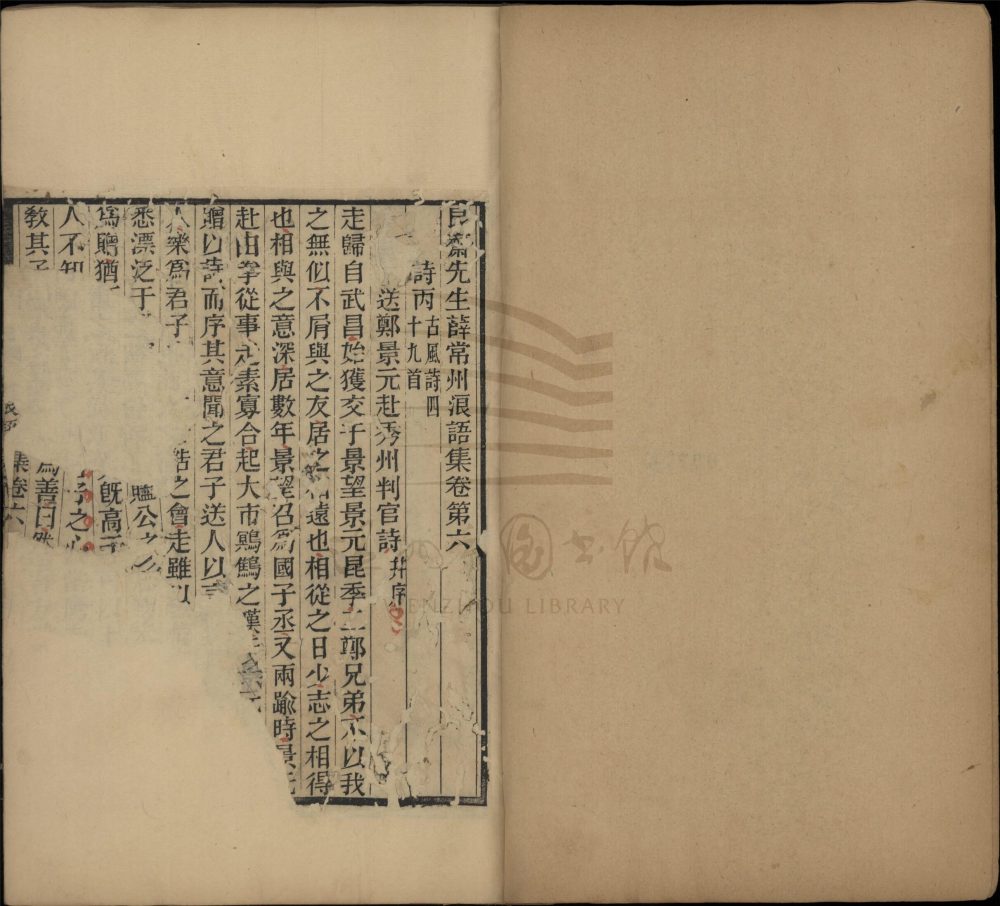 艮齋先生薛常州浪語集卷第六
詩丙 古風詩四十九首
送鄭景元赴秀州判官詩 并序
走歸自武昌始獲交于景望景元昆季二鄭兄弟不以我
之無似不屑與之友居之相遠也相從之日少志之相得
也相與之意深居數年景望召爲國子丞又兩踰時景元
赴由拳從事走素寡合起大市鷃鷦之嘆
贈以詩而序其意聞之君子送人以言
人樂爲君子 之會走雖以
悉漂泛于 贐公之
爲贈猶 既高
人不知 子之心
教其子 爲善日
集卷六
圖書館
WENZHOU LIBRARY